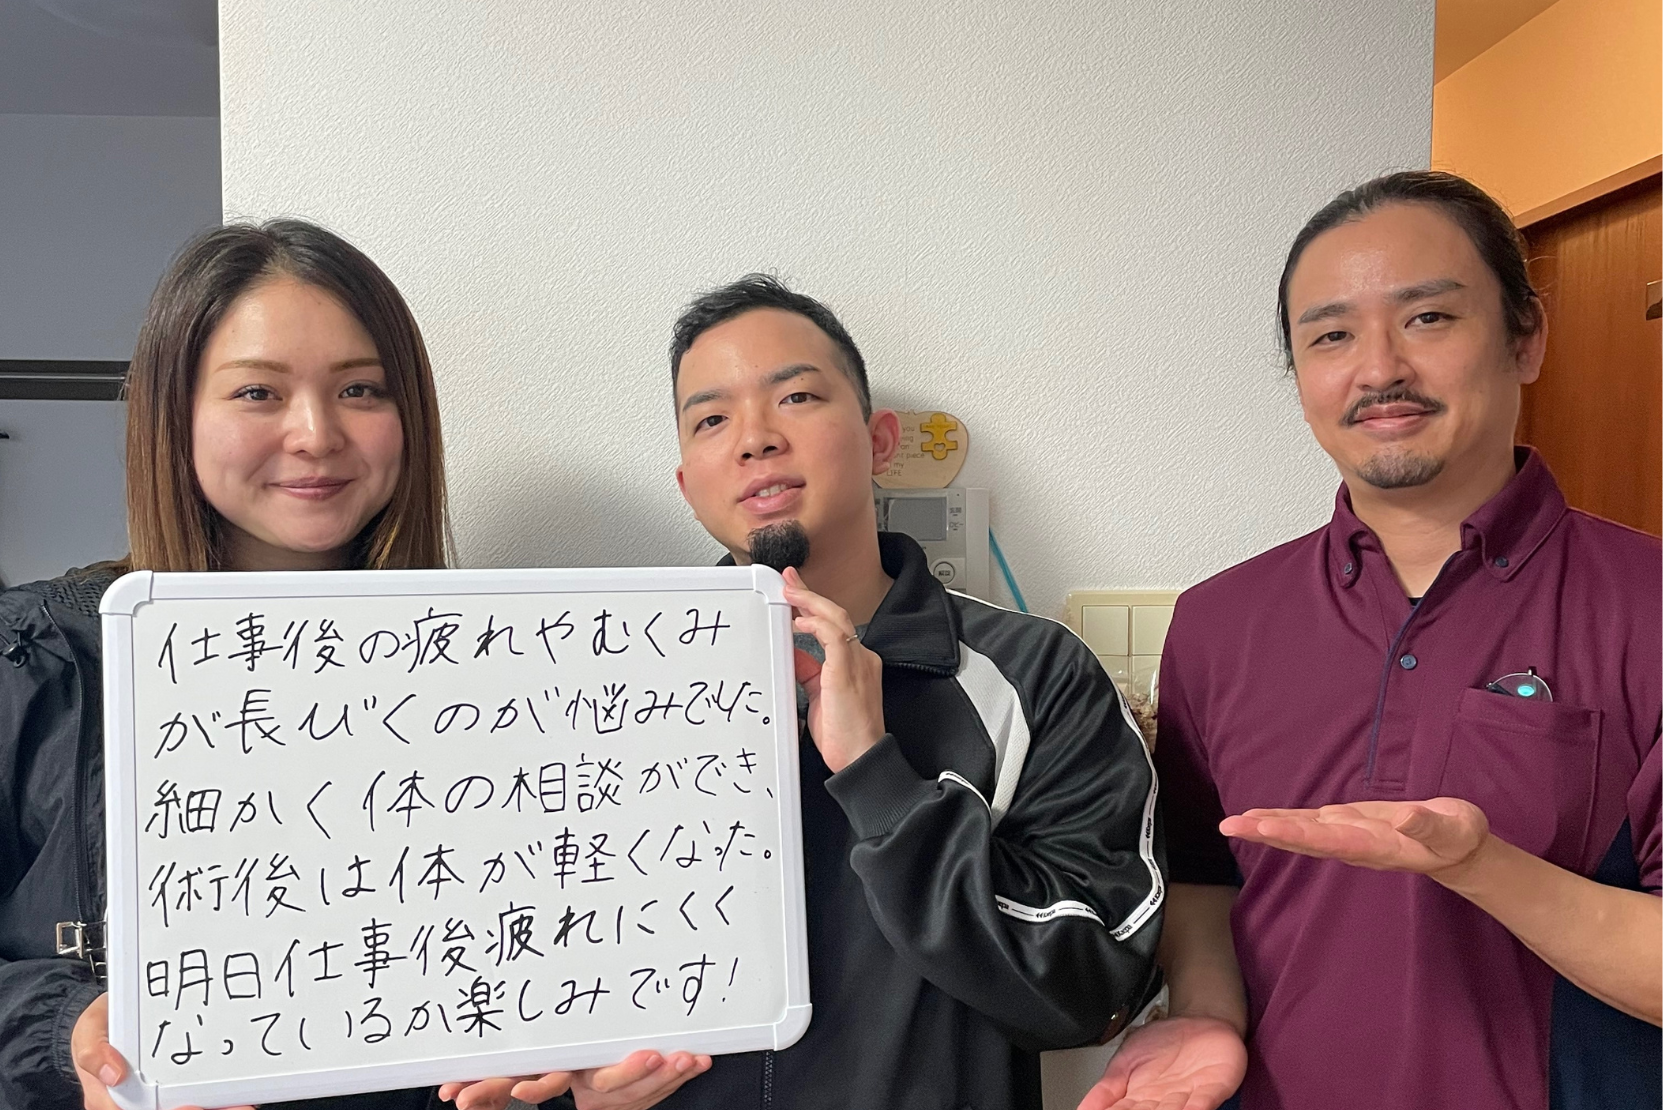 仕事後の疲れやむくみ
が長びくのが悩みでした。
細かく体の相談ができ、
術後は体が軽くなった。
明日仕事後疲れにくく
なっているか楽しみです!
you
my
LIFE